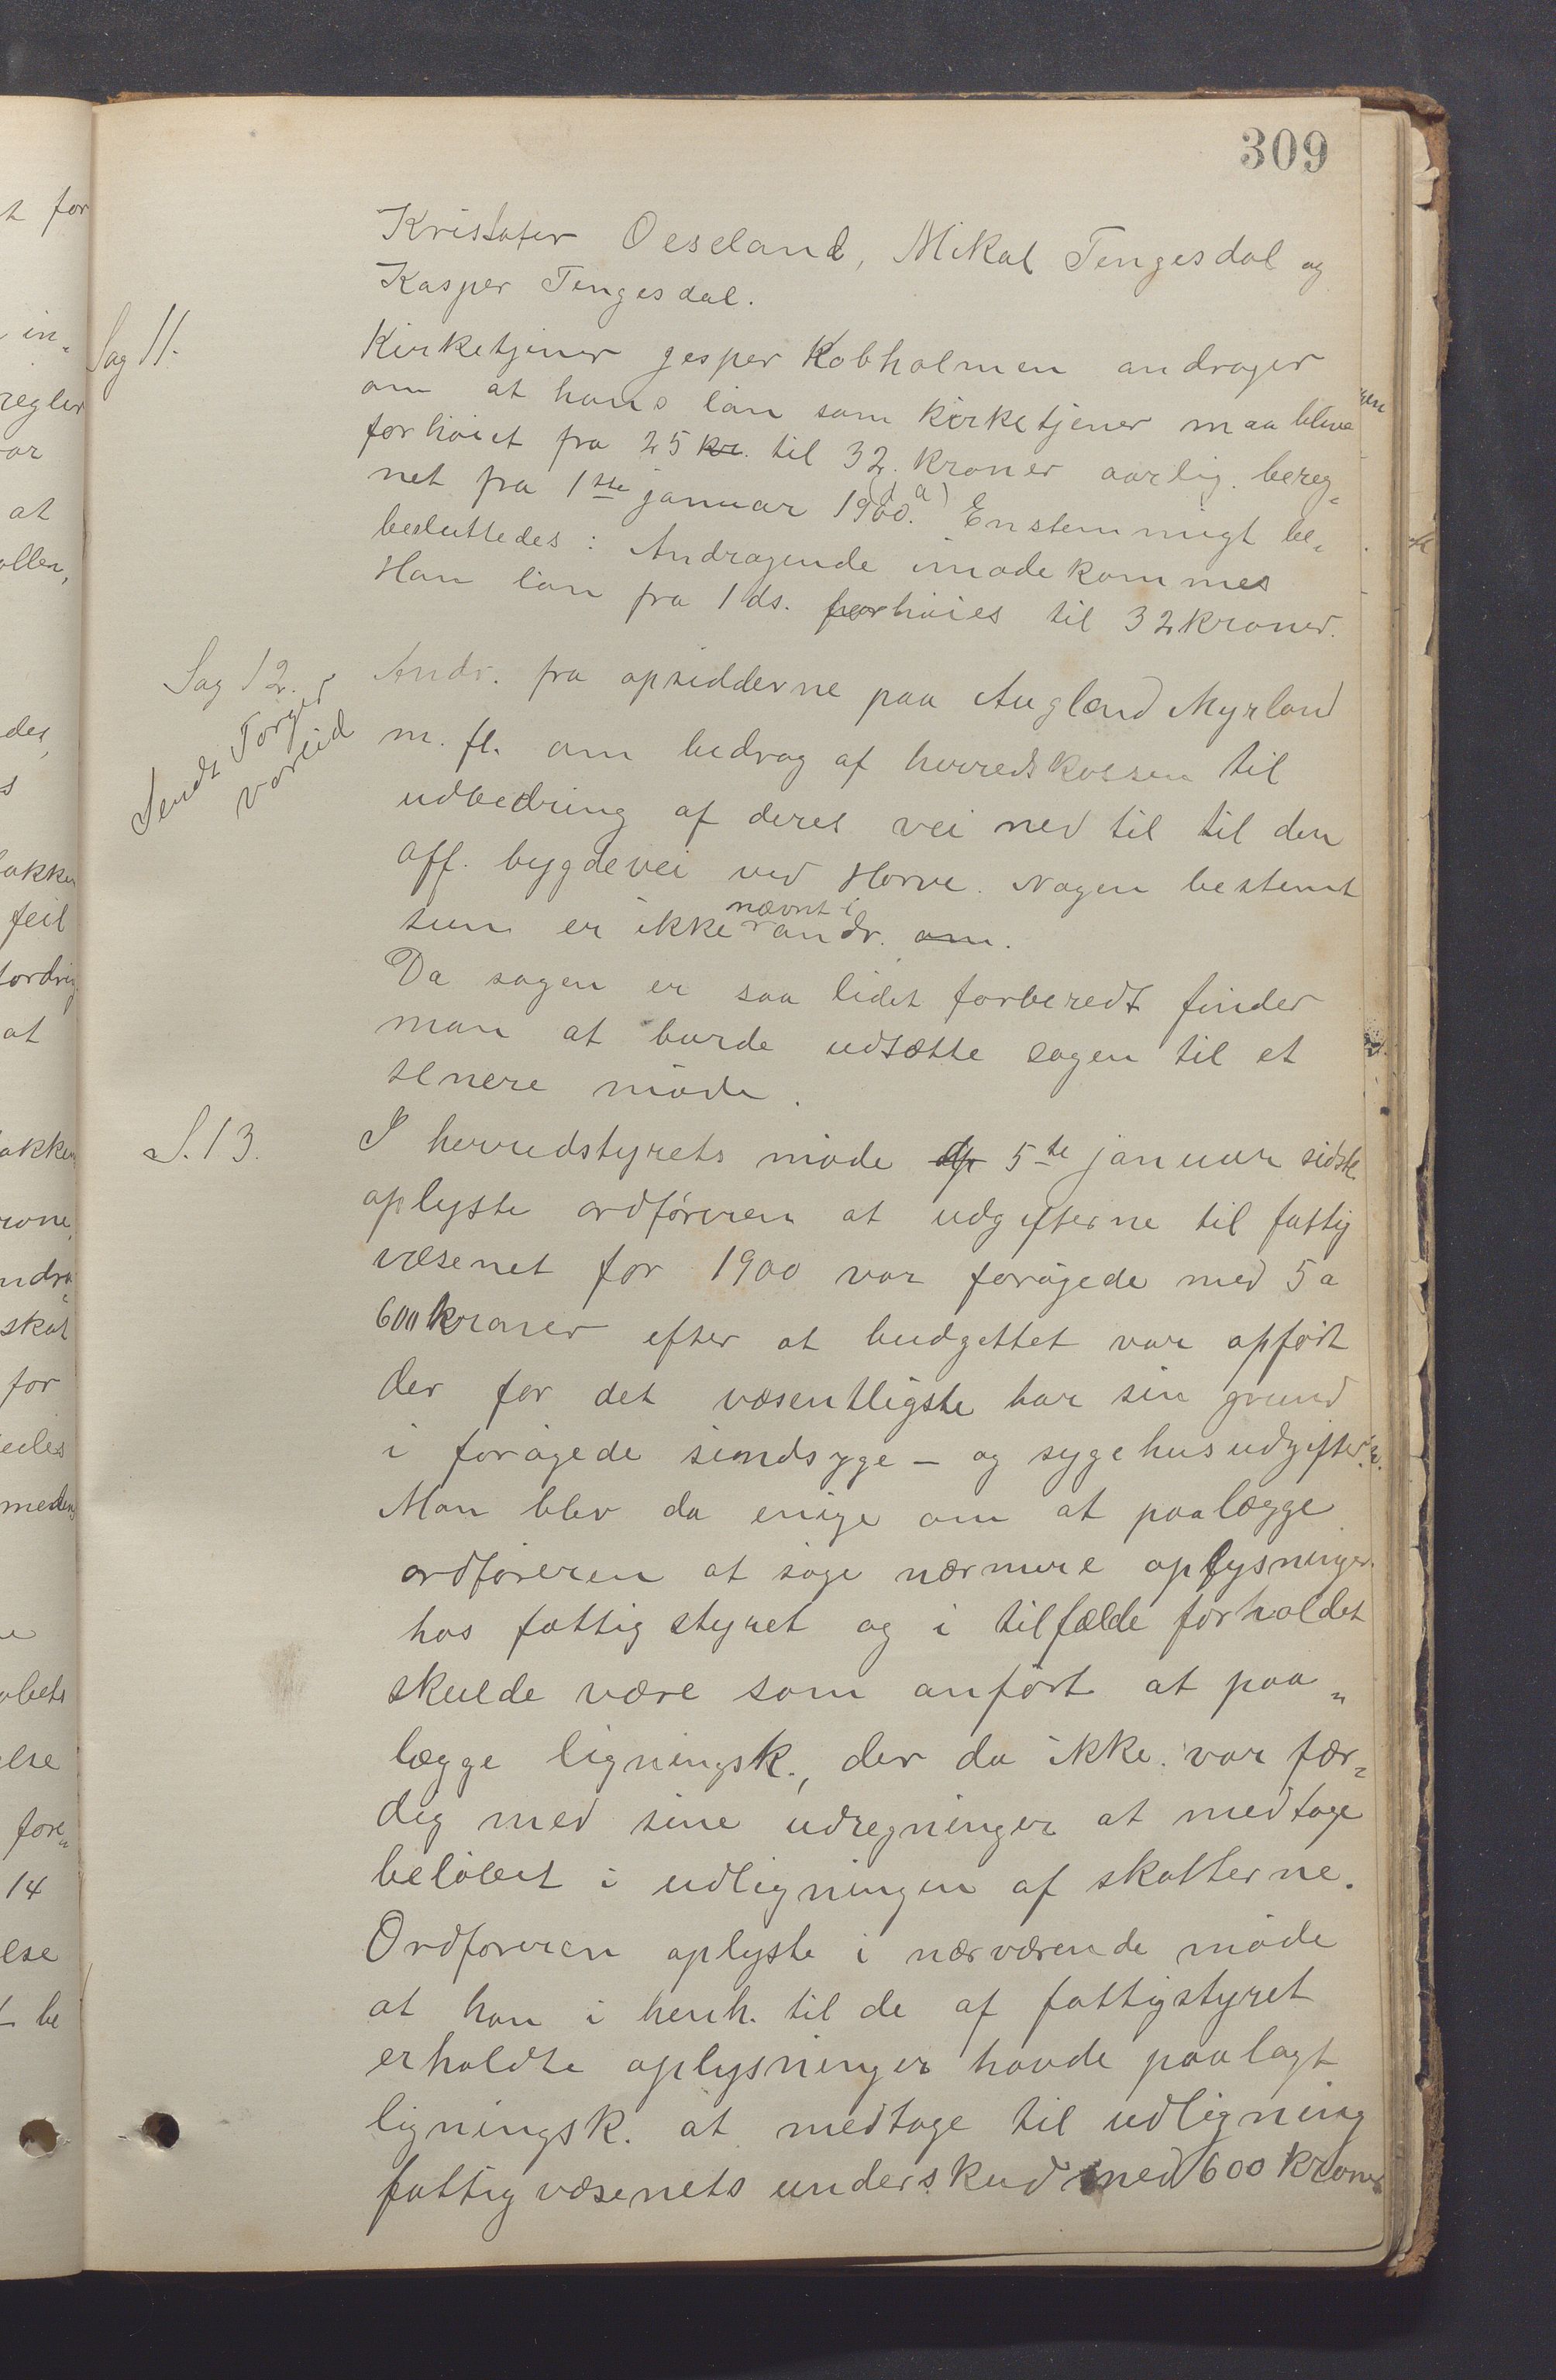 309
Kristofer Oeseland, Mikal Tengesdal og
Kasper Tengesdal.
Sag 11.
Kirketjener Jesper Kobholmen andrager
om at hans løn som kirketjener maa blive
forhøiet fra 25 kr. til 32. kroner aarlig. bereg-
net fra 1ste januar 1900. Enstemmigt be-
besluttedes: Andragende imødekommes
Han løn fra 1 ds. forhøies til 32 kroner.
Sag 12.
Sendt Torger
Andr. fra opsidderne paa Augland Myrland
m. fl. om bidrag af herredskassen til
udbedring af deres vei ned til til den
off. bygdevei ved Horve. Nogen bestemt
sum er ikke nævnt i andr. om.
Da sagen er saa lidet forberedt finder
man at burde udsætte sagen til et
senere møde.
S. 13.
I herredstyrets møde 5te januar sidste
oplyste ordføreren at udgifterne til fattig
væsenet for 1900 var forøgede med 5 a
600 kroner efter at budgettet var opført
der for det væsentligste har sin grund
i forøgede sindsyge- og sygehusudgifter.
Man blev da enige om at paalægge
ordføreren at søge nærmere oplysninger
hos fattigstyret og i tilfælde forholdet
skulde være som anført at paa-
lægge ligningsk., der da ikke var fær-
dig med sine udregninger at medtage
beløbet i udligningen af skatterne.
Ordføreren oplyste i nærværende møde
at han i henh. til de af fattigstyret
erholdte oplysninger havde paalagt
ligningsk. at medtage til udligning
fattigvæsenets underskud med 600 kroner